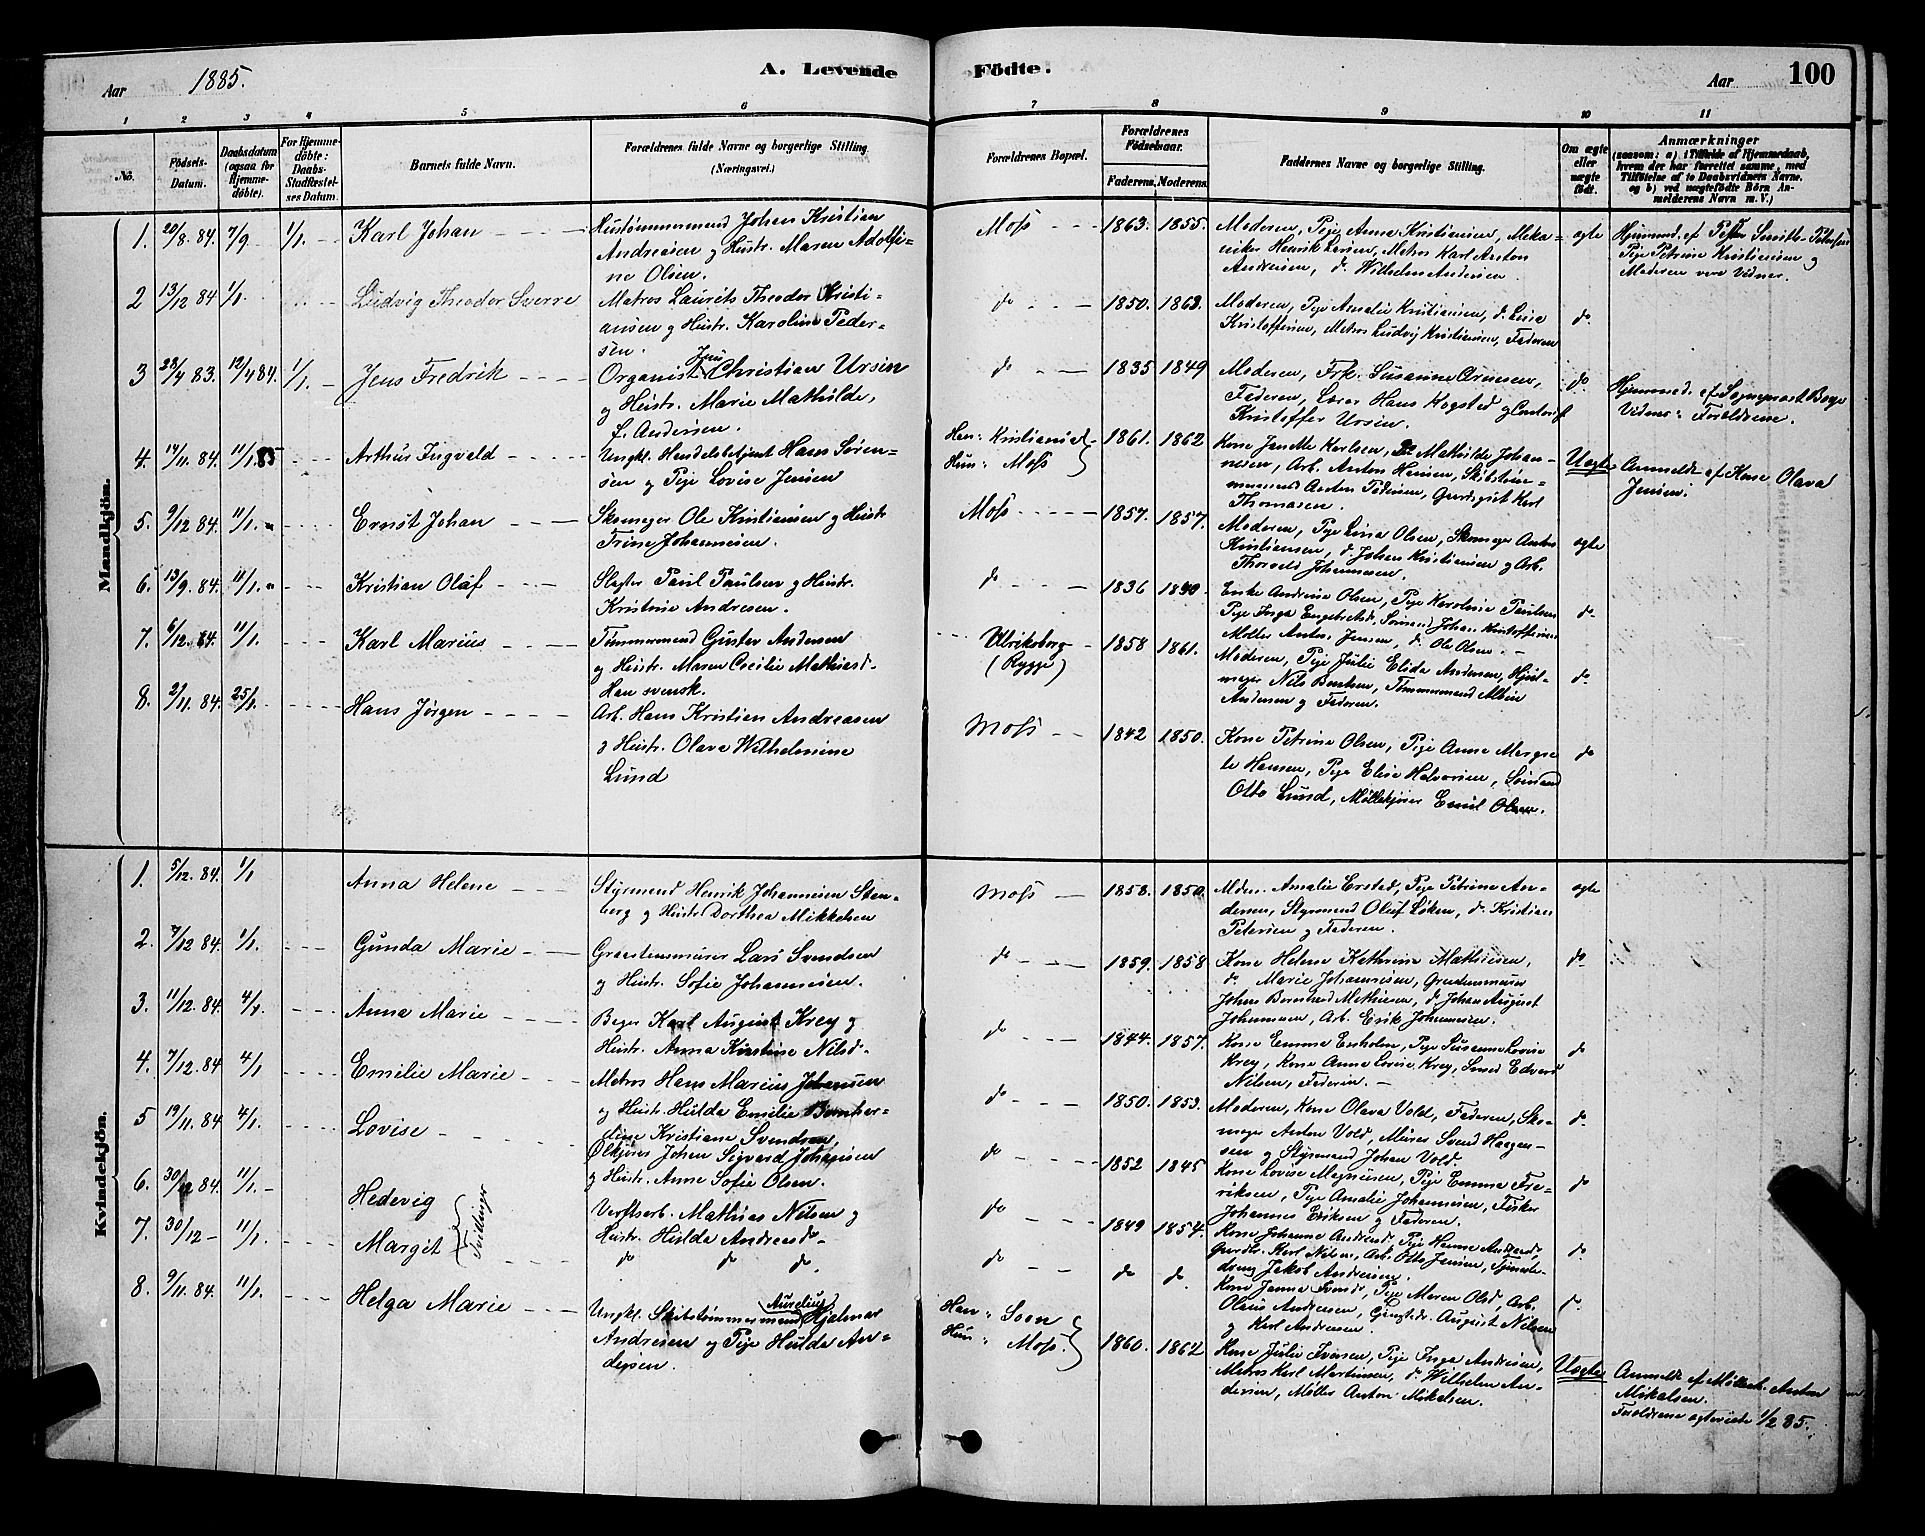 Aar 1885. A. Levende Födte. Aar 100
1 2 3 4 5 6 7 8 9 10 11
No.
Födsels-Datum.
Daabsdatum (ogsaa for Hjemmedöbte).
For Hjemmedöbte: Daabs-Stadfæstelses Datum.
Barnets fulde Navn.
Forældrenes fulde Navne og borgerlige Stilling.
(Næringsvei.)
Forældrenes Bopæl.
Forældrenes Födselsaar.
Faderens. Moderens.
Faddernes Navne og borgerlige Stilling.
Om ægte eller uægte födt.
Anmærkninger
(saasom: a) i Tilfælde af Hjemmedaab, hvem der har forrettet samme, med Tilföielse af to Daabsvidners Navne, og b) ved uægtefödte Börn Anmelderens Navn m. V.)
Mandkjön.
1. 20/8. 84. 7/9 1/1. Karl Johan
Johan Kristian
Andreasen og Hustr. Maren Adolfi-
ne Olsen.
Moss 1863. 1855.
Moderen, Pige Anna Kristiansen, Meka-
niker Henrik Larsen, Matros Karl Anton
Andersen, do Wilhelm Andersen
ægte
Pige Petrine Kristiansen og
Moderen vare Vidner.
2 13/12 84 1/1. Ludvig Theodor Sverre
Matros Laurits Theodor Kristi-
ansen og Hustr. Karoline Peder-
sen.
do 1850. 1863.
Moderen, Pige Amalie Kristiansen, do Lina
Kristoffersen, Matros Ludvig Kristiansen, Faderen
do
3 23/4 83. 12/4 84. 1/1. Jens Fredrik
Organist Jens Christian Ursin
og Hustr. Marie Mathilde,
f. Andersen.
do 1835 1849
Moderen, Frk. Susanne Arnesen,
Faderen, Lærer Hans Kogsted og
Kristoffer Ursin.
do
Hjemmed. af Sogneprest
Vidner: Forældrene.
4. 14/11. 84. 11/1. 85 Arthur Ingvald
Ungkl. Handelsbetjent Hans Søren-
sen og Pige Lovise Jensen
Han: Kristiania
Hun: Moss
1861. 1862
Kone Janette Karlsen, Mathilde Johan-
nesen, Arb. Anton Hansen, Skibstøm-
mermand Anton Pedersen, Karl
Thomasen.
Uægte
Anmeldt af Kone Olava
Jensen.
5. 9/12 84. 11/1. Ernst Johan
Skomager Ole Kristiansen og Hustr.
Trine Johannesen.
Moss 1857. 1857.
Moderen, Pige Lina Olsen, Skomager Anton
Kristiansen, do Johan Kristiansen og Arb.
Thorvald Johannesen.
ægte
6. 13/9. 84. 11/1. Kristian Olaf
Slagter Paul Paulsen og Hustr.
Kristine Andresen.
do 1836 1840.
Enke Andrine Olsen, Pige Karoline Paulsen
Johan Kristoffersen
Møller Anton Jensen, do Ole Olsen.
do
7. 6/12. 84. 11/1. Karl Marius
Tømmermand Gustav Andersen
og Hustr. Maren Cecilie Mathiasd.
Han svensk.
Ulriksborg
(Rygge)
1858 1861.
Moderen, Pige Julie Elida Andersen, Hjul-
mager Nils Tømmermand Albin
Andersen og Faderen.
do
8. 2/11. 84. 25/1. Hans Jørgen
Arb. Hans Kristian Andreasen
og Hustr. Olava Wilhelmine
Lund
Moss 1842 1850.
Kone Petrine Olsen, Pige Anne Margre-
te Hansen, Pige Elise Halvorsen, Sømand
Otto Lund, Møllekjører Emil Olsen.
do
Kvindekjön.
1. 5/12. 84. 1/1 Anna Helene
Styrmand Henrik Johannesen Sten-
berg og Hustr. Dorthea Mikkelsen
Moss 1858. 1850.
Amalie Ersted, Pige Petrine An-
dersen, Styrmand Oluf Løken, do Kristian
Petersen og Faderen.
ægte
2. 7/12 84. 1/1. Gunda Marie
Graastensmurer Lars Svendsen
og Hustr. Sofie Johannesen.
do 1859. 1858
Kone Helene Kathrine Mathiesen,
do Marie Johannesen,
Johan Bernhard Mathiesen, do Johan August
Johannesen, Arb. Erik Johannesen.
do
3. 11/12. 84. 4/1. Anna Marie
Bager Karl August Krey og
Hustr. Anna Kirstine Nilsd.
do 1844. 1857.
Kone Emma Pige Susanne Lovise
Krey, Kone Anne Lovise Krey, Edvard
Nilsen, Faderen.
do
4. 7/12. 84 4/1 Emilie Marie
Matros Hans Marius Johansen
og Hustr. Hulda Emilie Bernhar-
dine Kristiane Svendsen,
do 1850. 1853.
Moderen, Kone Olava Vold, Faderen, Sko-
mager Anton Vold, Murer Svend Haagen-
sen og Styrmand Johan Vold.
do
5 19/11. 84 4/1. Lovise
Ølkjører Johan Sigvard Johansen
og Hustr. Anne Sofie Olsen.
do 1852 1845
Kone Lovise Magnusen, Pige Emma Fre-
driksen, Pige Amalie Johannesen, Fisker
Johannes Eriksen og Faderen.
do
6. 30/12 84. 11/1. Hedevig
Tvillinger
Verftsarb. Mathias Nilsen og
Hustr. Hulda Andreasd.
do 1849 1854.
Kone Johanne Andreasd. Pige Hanna
Karl Nilsen, Arb. Otto Jensen, Tjeneste-
dreng Jakob Andreasen.
do
7. 30/12 11/1. Margit
do do do.
do do do
Kone Janna Pige Maren Olsd., Arb.
Olaus Andersen, August Nilsen
og Karl Andersen.
do
8. 9/11. 84. 11/1. Helga Marie
Ungkl. Skibstømmermand Aurelius Hjalmar
Andresen og Pige Hulda An-
dersen.
Han: Soon
Hun: Moss.
1860. 1862
Kone Julie Iversen, Pige Inga Andersen,
Matros Karl Martinsen, do Wilhelm An-
dersen, Møller Anton Mikalsen.
Uægte
Anmeldt af Møllerk. Anton
Mikalsen.
Forældrene ægteviet 1/2 85.